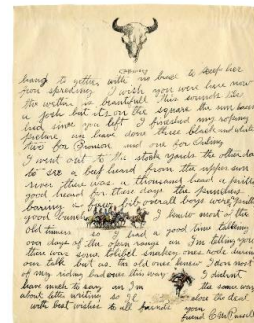 bang to gether with no base to keep her
from spreding I wish you were here now
the wether is beautifull this sounds like
a josh but its on the square the sun has
since you left I finished my roping
picture an have done three black and white
two for and one for
I went out to the stock yards the other day
to see a beef heard from the upper sun
river there was a thousand head a pritty
good heard for these days the punchers
baring a few bib overall boys were pritty
good bunch I knew most of the
old timers I had a good time talking
over days of the open range an I'm telling you
there was some snakey ones rode during
our talk but us the old ones I don most
of my riding bad ones this way I didn't
have much to say an I'm the same way
about letter writing so I'll close the deal
with best wishes to all friends your
friend C M Russell